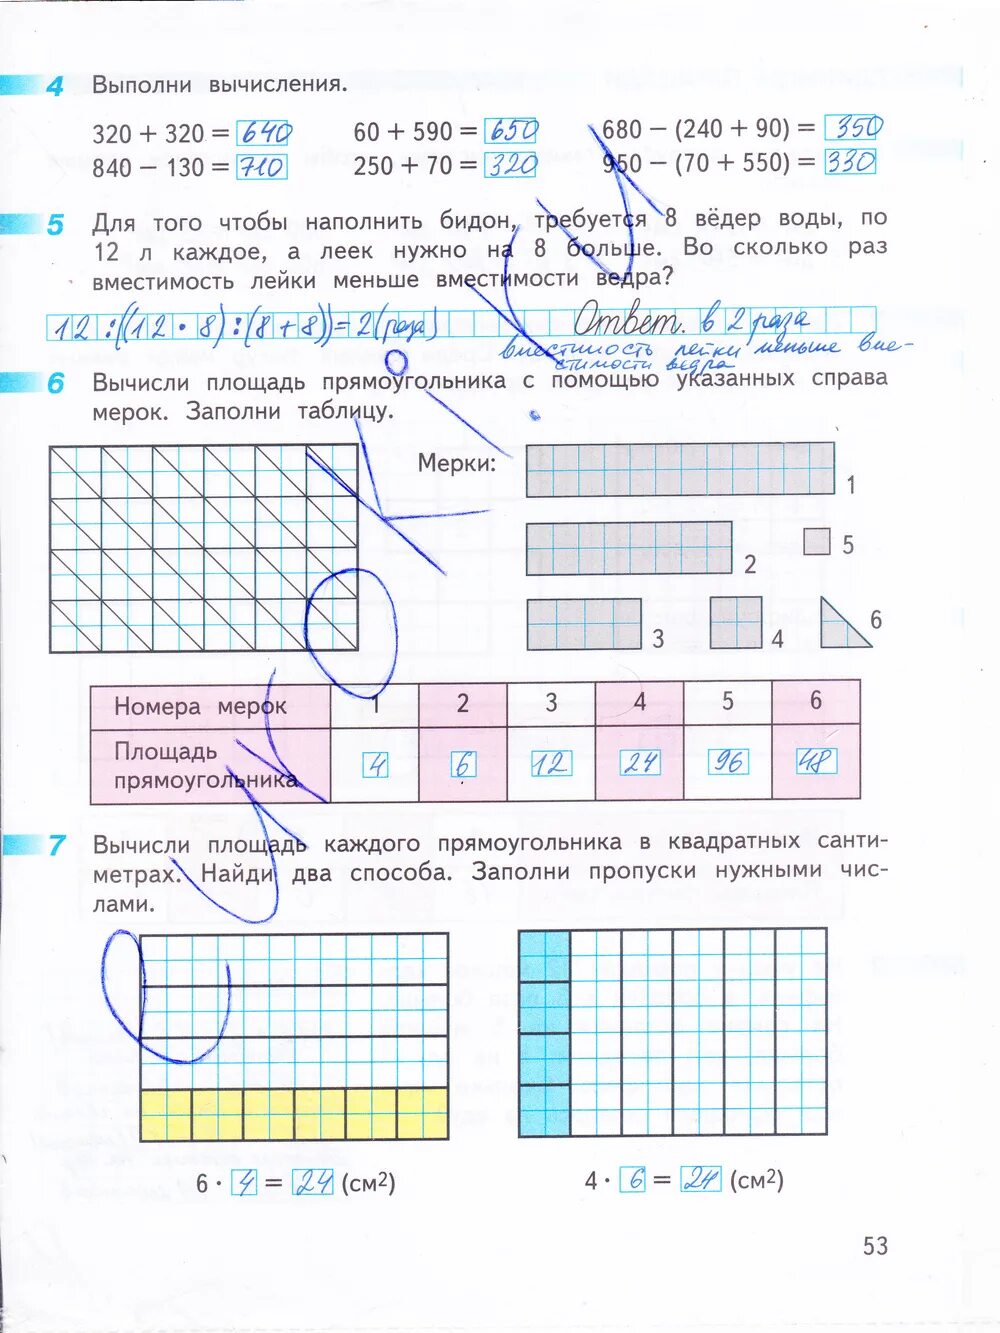 4 Выполни вычисления.
320 + 320 = 640 60 + 590 = 650 680 − (240 + 90) = 350
840 − 130 = 710 250 + 70 = 320 950 − (70 + 550) = 330
5 Для того чтобы наполнить бидон, требуется 8 вёдер воды, по
12 л каждое, а леек нужно на 8 больше. Во сколько раз
вместимость лейки меньше вместимости ведра?
12 :((12 • 8) : (8 + 8))= 2 (раза) Ответ. в 2 раза
вместимость лейки меньше вме-
стимости ведра
6 Вычисли площадь прямоугольника с помощью указанных справа
мерок. Заполни таблицу.
Мерки:
1
2
5
3
4
6
Номера мерок 1 2 3 4 5 6
Площадь
прямоугольника 4 6 12 24 96 48
7 Вычисли площадь каждого прямоугольника в квадратных санти-
метрах. Найди два способа. Заполни пропуски нужными чис-
лами.
6 · 4 = 24 (см²) 4 · 6 = 24 (см²)
53